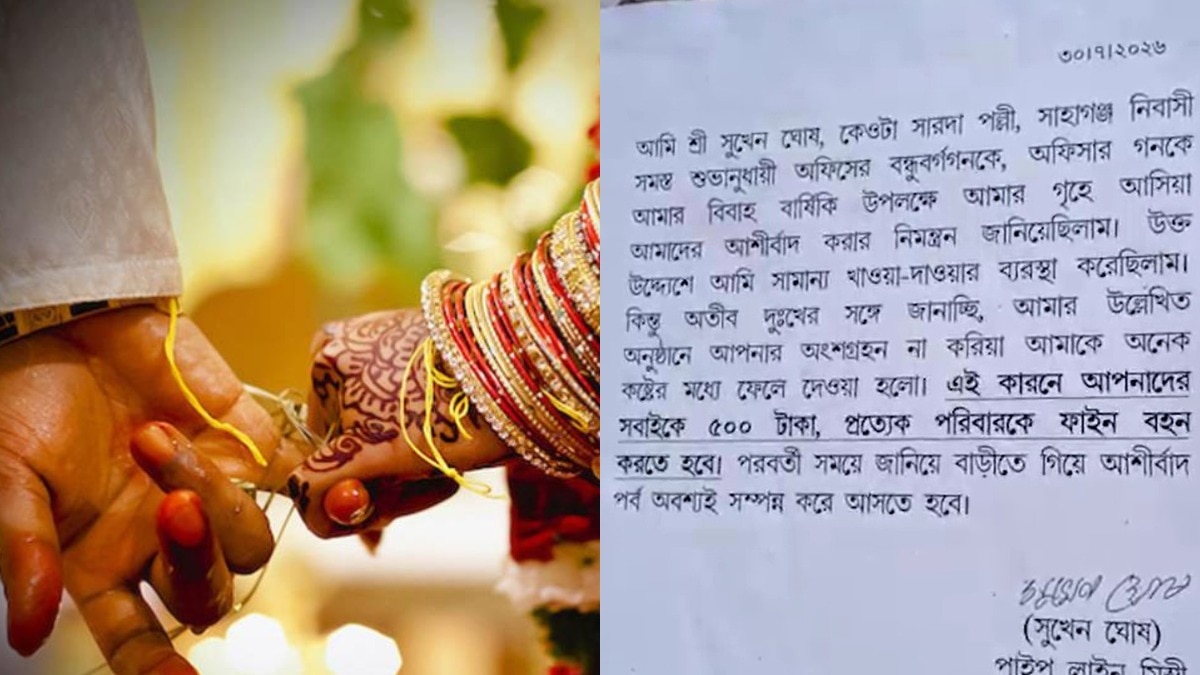 ৩০।৭।২০২৬
আমি শ্রী সুখেন ঘোষ, কেওটা সারদা পল্লী, সাহাগঞ্জ নিবাসী
সমস্ত শুভানুধায়ী অফিসের বন্ধুবর্গগনকে, অফিসার গনকে
আমার বিবাহ বার্ষিকি উপলক্ষে আমার গৃহে আসিয়া
আমাদের আশীর্বাদ করার নিমন্ত্রন জানিয়েছিলাম। উক্ত
উদ্দ্যেশে আমি সামান্য খাওয়া-দাওয়ার ব্যরস্থা করেছিলাম।
কিন্তু অতীব দুঃখের সঙ্গে জানাচ্ছি, আমার উল্লেখিত
অনুষ্ঠানে আপনার অংশগ্রহন না করিয়া আমাকে অনেক
কষ্টের মধ্যে ফেলে দেওয়া হলো। এই কারনে আপনাদের
সবাইকে ৫০০ টাকা, প্রত্যেক পরিবারকে ফাইন বহন
করতে হবে। পরবর্তী সময়ে জানিয়ে বাড়ীতে গিয়ে আশীর্বাদ
পর্ব অবশ্যই সম্পন্ন করে আসতে হবে।
(সুখেন ঘোষ)
পাইপ লাইন মিস্ত্রী